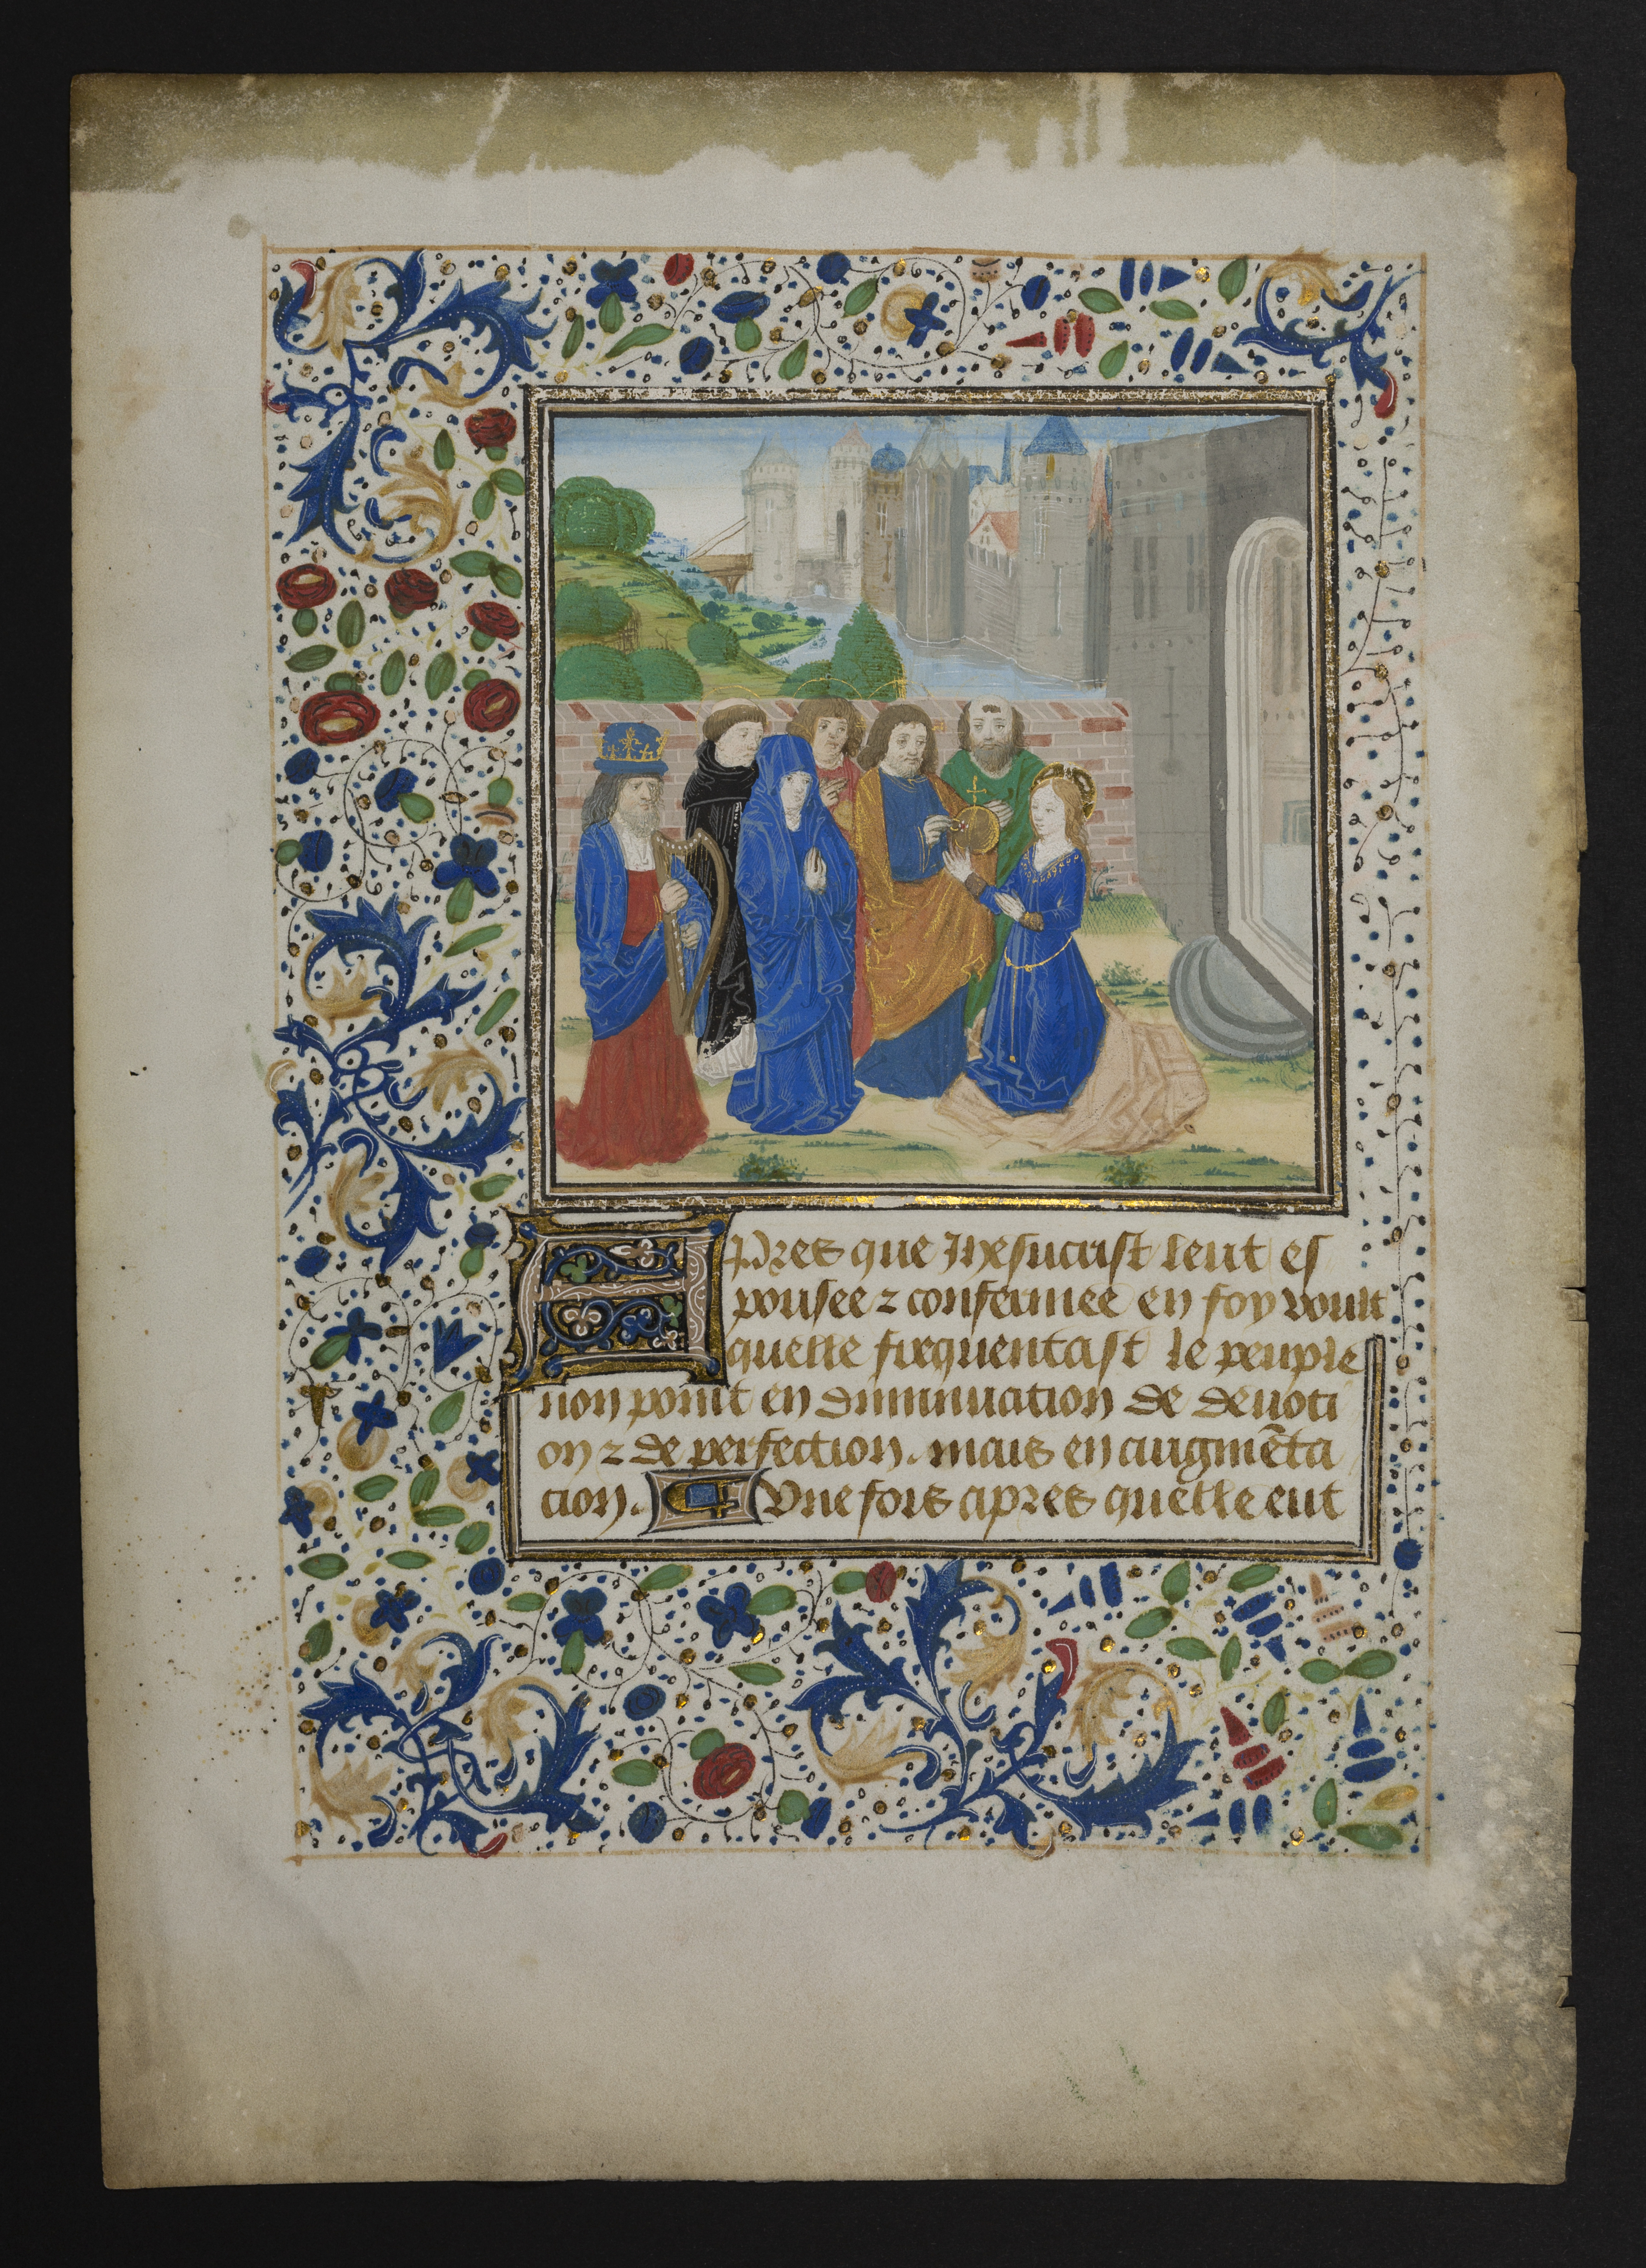 Apres que Jhesucrist leut es
pousee ⁊ confermee en foy voult
quelle frequentast le peuple
non point en diminuacion de deuoti
on ⁊ de perfection. mais en augmẽta
cion. Une fois apres quelle eut